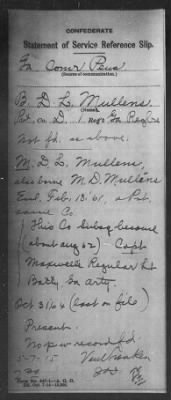 CONFEDERATE
Statement of Service Reference Slip.
Ga Comr Pens
(Source of communication.)
B. D. L. Mullens
(Name.)
Pvt. Co. D. 1 Regt Ga Reg
Not fd. as above.
M. D. L. Mullens,
also borne M. D. Mullens
Enl. Feb. 13, '61, a Pvt.
same Co.
(This Co subsq. became
(about aug 62) - Capt
Maxwell's Regular Lt
Batty Ga Arty.
Oct 31/64 (last on file)
Present.
No p w record fd
5-7-15